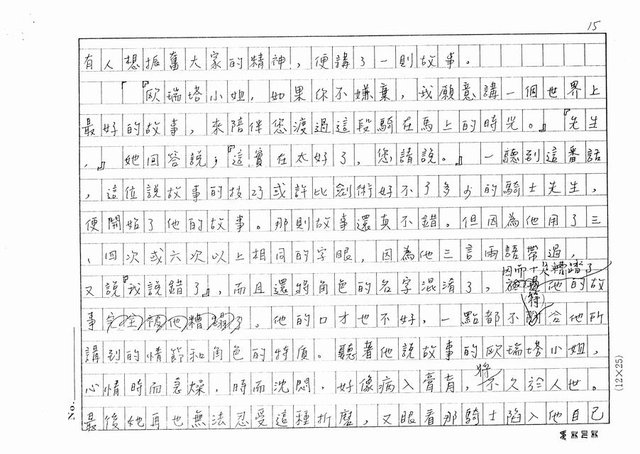 15
有人想振奮大家的精神，便講了一則故事。
「『歐瑞塔小姐，如果你不嫌棄，我願意講一個世界上
最好的故事，來陪伴您渡過這段騎在馬上的時光。』『先生
，』她回答說，『這實在太好了，您請說。』一聽到這番話
，這位說故事的技巧或許比劍術好不了多少的騎士先生，
便開始了他的故事。那則故事還真不錯。但因為他用了三
、四次或六次以上相同的字眼，因為他三言兩語帶過，
因而十分糟蹋了
又說『我說錯了』，而且還將角色的名字混淆了，他的故
事完全被他糟蹋了。他的口才也不好，一點都不符合他所
講到的情節和角色的特質。聽著他說故事的歐瑞塔小姐，
將
心情時而急燥，時而沈悶，好像病入膏肓，不久於人世。
最後她再也無法忍受這種折磨，又眼看那騎士陷入他自己
No.
(12×25)